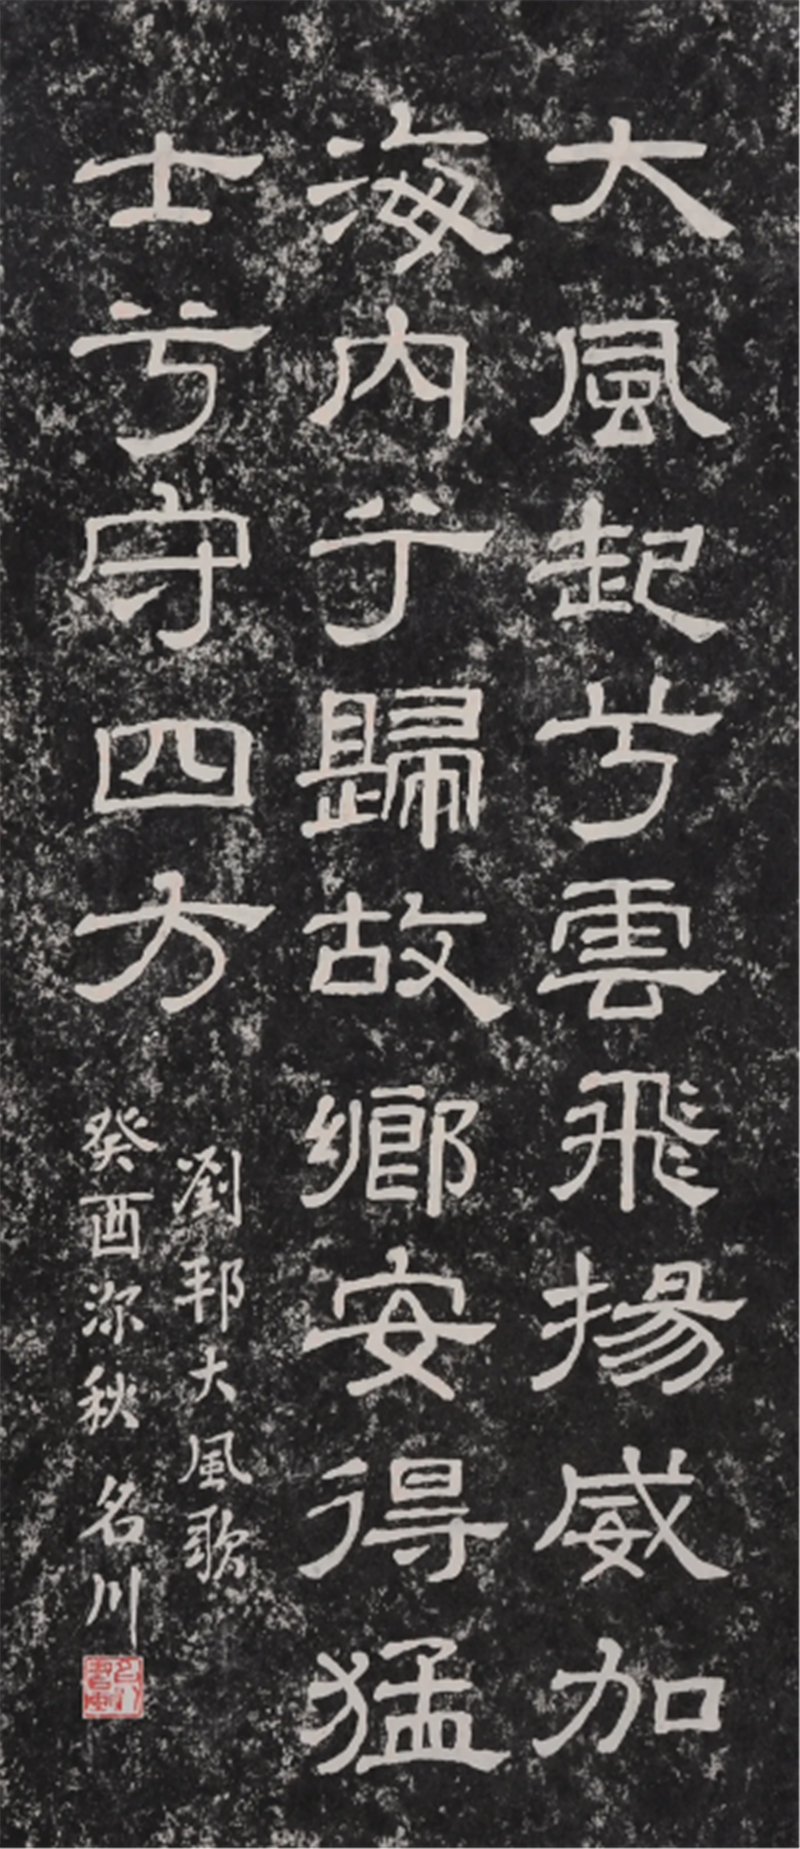 大風起兮雲飛揚威加
海内乎歸故鄉安得猛
士兮守四方
劉邦大風歌
癸酉深秋 名川